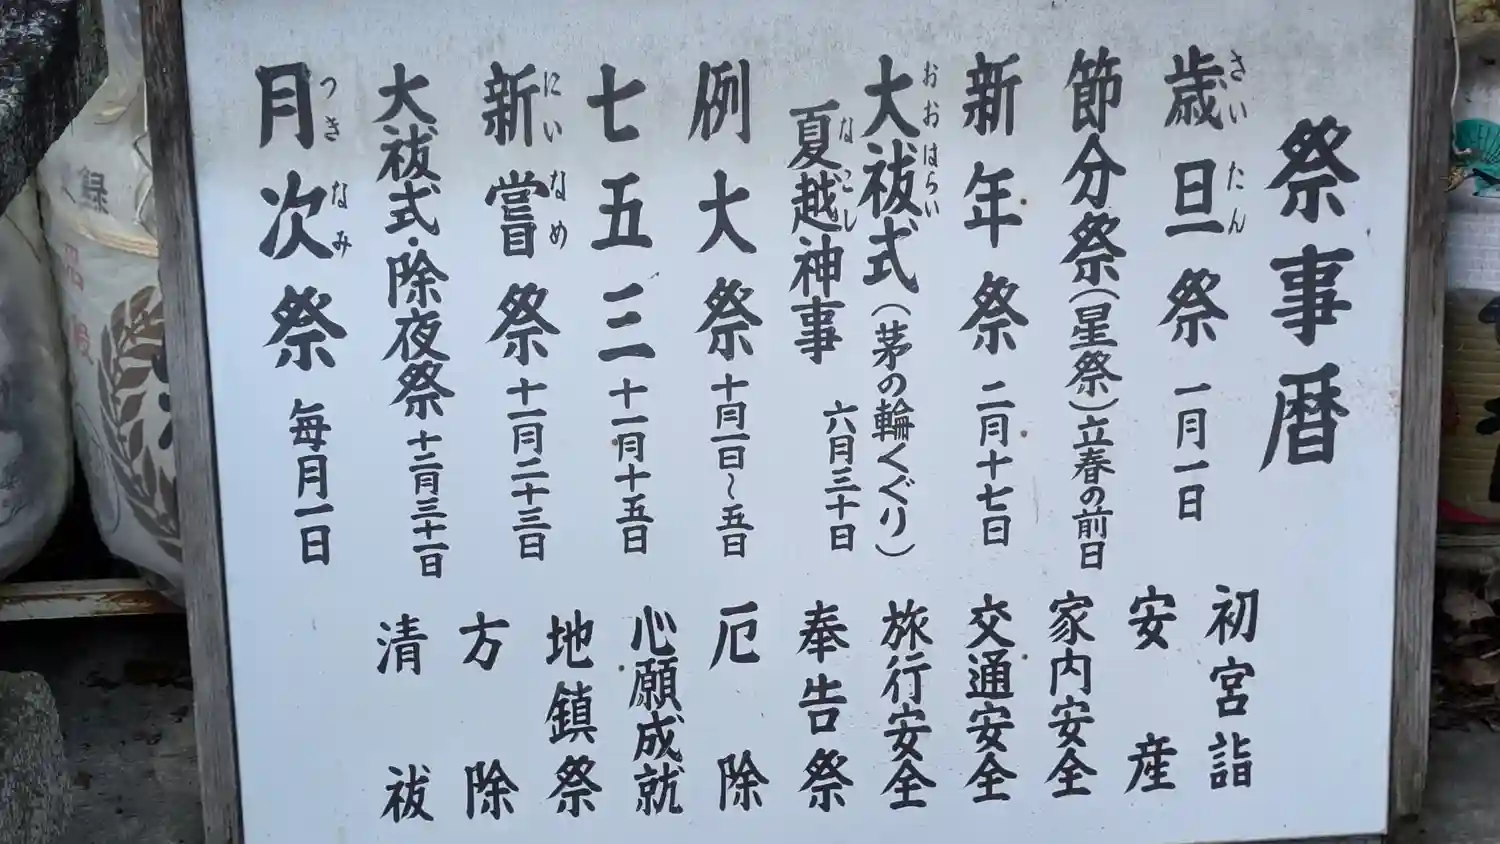 祭事暦
歳旦祭 一月一日
さいたん
節分祭(星祭)立春の前日
新年祭 二月十七日
大祓式(茅の輪くぐり)
おおはらい
夏越神事 六月三十日
なごし
例大祭 十月一日〜五日
七五三 十一月十五日
新嘗祭 十一月二十三日
にいなめ
大祓式・除夜祭 十二月三十一日
月次祭 毎月一日
つきなみ
初宮詣
安産
家内安全
交通安全
旅行安全
奉告祭
厄除
心願成就
地鎮祭
方除
清祓
緑